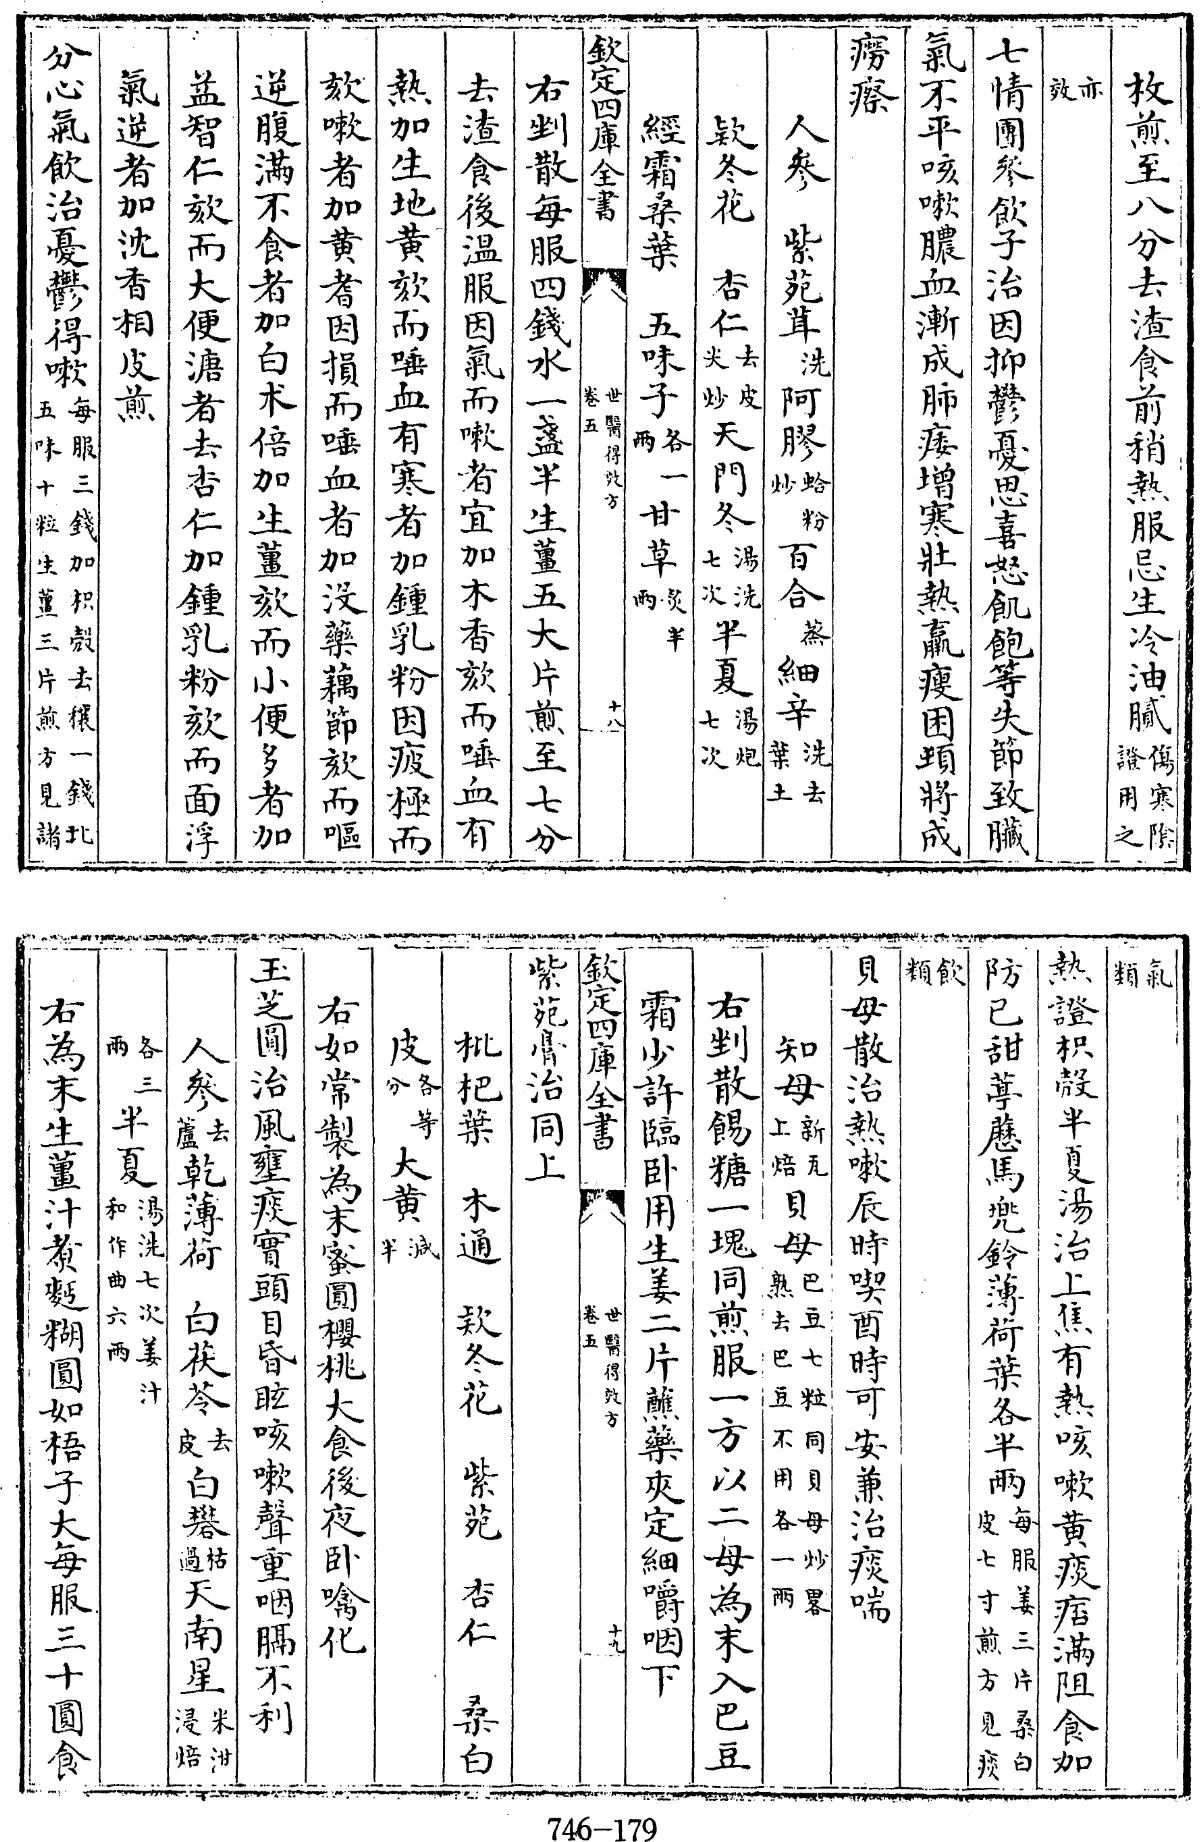 枚煎至八分去渣食前稍熱服忌生冷油膩傷寒除證用之
亦效
七情團參飲子治因抑鬱憂思喜怒飢飽等失節致臟
氣不平咳嗽膿血漸成肺痿增寒壯熱羸瘦困頓將成
癆瘵
人參 紫苑茸洗阿膠蛤粉炒百合蒸細辛洗去葉土
欵冬花 杏仁去皮尖炒天門冬湯洗七次半夏湯炮七次
經霜桑葉 五味子各一兩甘草炙半兩
欽定四庫全書 世醫得效方卷五 十八
右剉散每服四錢水一盞半生薑五大片煎至七分
去渣食後温服因氣而嗽者宜加木香欬而唾血有
熱加生地黄欬而唾血有寒者加鍾乳粉因疲極而
欬嗽者加黄耆因損而唾血者加没藥藕節欬而嘔
逆腹滿不食者加白术倍加生薑欬而小便多者加
益智仁欬而大便溏者去杏仁加鍾乳粉欬而面浮
氣逆者加沈香相皮煎
分心氣飲治憂鬱得嗽每服三錢加枳殼去穰一錢北五味十粒生薑三片煎方見諸
氣類
熱證枳殼半夏湯治上焦有熱咳嗽黄痰痞滿阻食加
防已甜葶藶馬兜鈴薄荷葉各半兩每服姜三片桑白皮七寸煎方見痰
飲類
貝母散治熱嗽辰時喫酉時可安兼治痰喘
知母新瓦上焙貝母巴豆七粒同貝母炒畧熟去巴豆不用各一兩
右剉散餳糖一塊同煎服一方以二母為末入巴豆
霜少許臨卧用生姜二片蘸藥夾定細嚼咽下
欽定四庫全書 世醫得效方卷五 十九
紫苑膏治同上
枇杷葉 木通 欵冬花 紫苑 杏仁 桑白
皮各等分 大黄減半
右如常製為末蜜圓櫻桃大食後夜卧噙化
玉芝圓治風壅痰實頭目昏眩咳嗽聲重咽膈不利
人參去蘆乾薄荷 白茯苓去皮白礬枯過天南星米泔浸焙
各三兩半夏湯洗七次姜汁和作曲六兩
右為末生薑汁煮麪糊圓如梧子大每服三十圓食
746-179